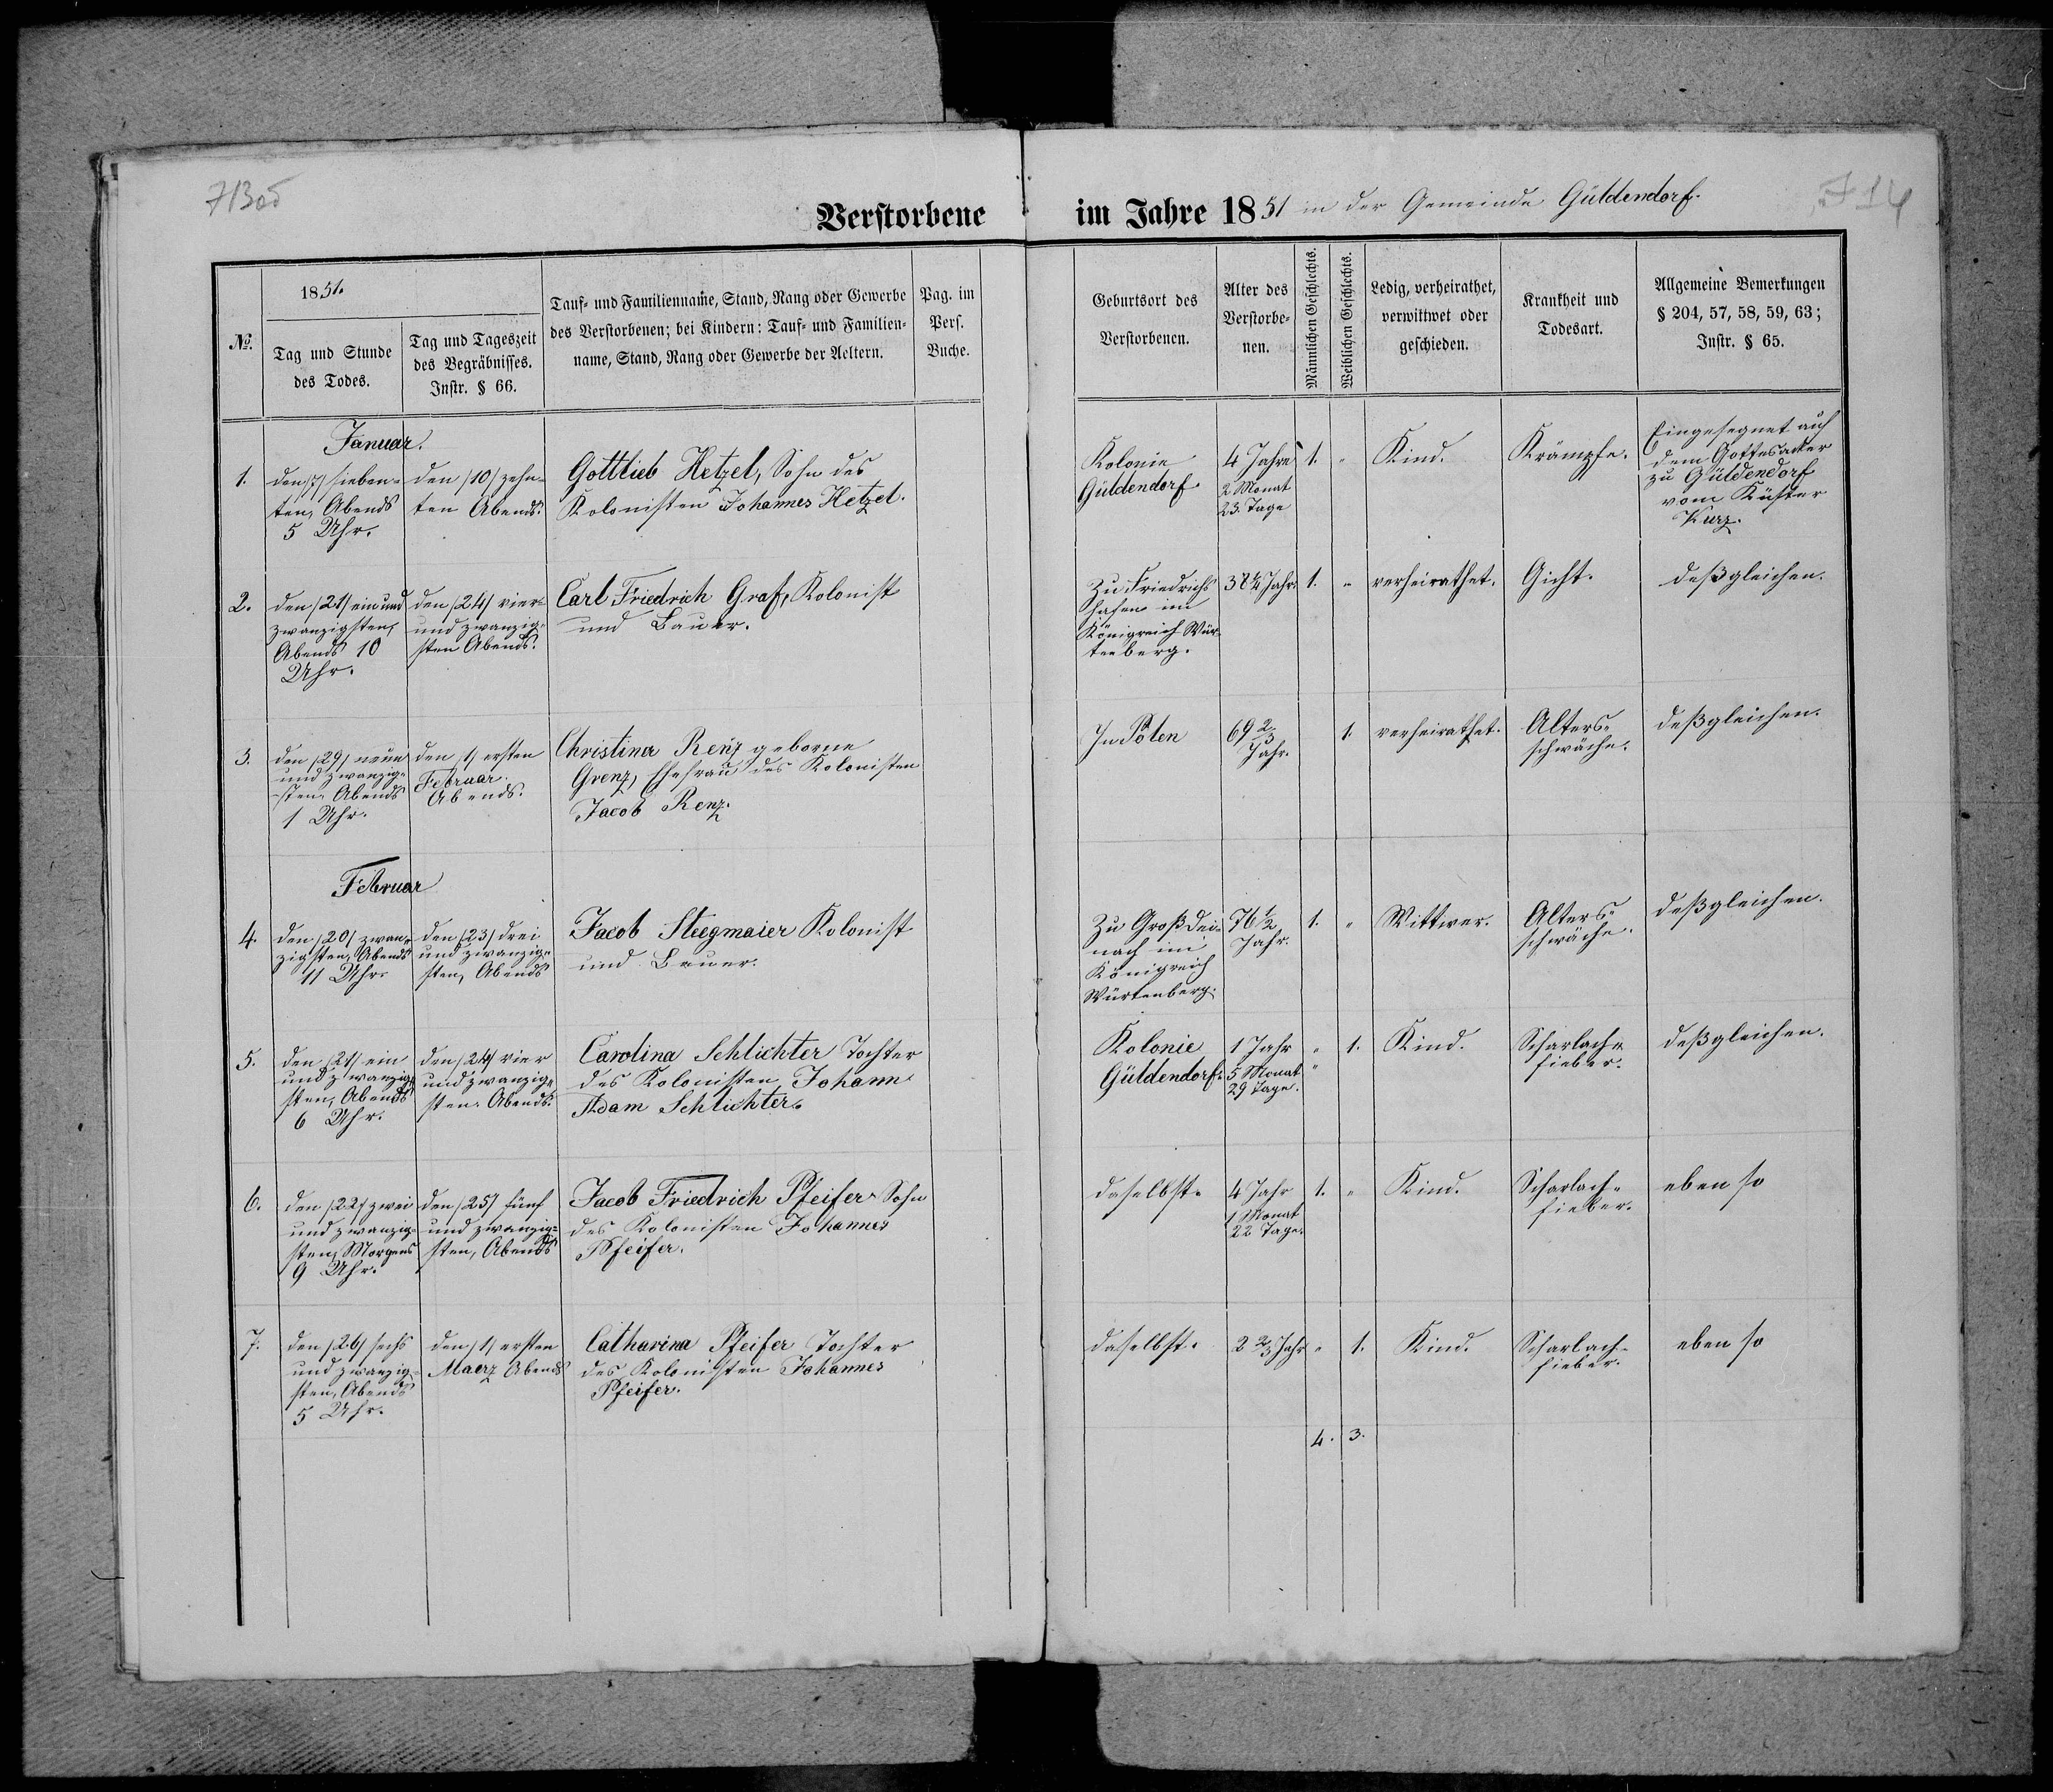 713об
714
Verstorbene im Jahre 1851 in der Gemeinde Güldendorf.
№.
1851.
Tag und Stunde
des Todes.
Tag und Tageszeit
des Begräbnisses.
Instr. § 66.
Tauf- und Familienname, Stand, Rang oder Gewerbe
des Verstorbenen; bei Kindern: Tauf- und Familien-
name, Stand, Rang oder Gewerbe der Aeltern.
Pag. im
Pers.
Buche.
Geburtsort des
Verstorbenen.
Alter des
Verstorbe-
nen.
Männlichen Geschlechts.
Weiblichen Geschlechts.
Ledig, verheirathet,
verwittwet oder
geschieden.
Krankheit und
Todesart.
Allgemeine Bemerkungen
§ 204, 57, 58, 59, 63;
Instr. § 65.
Januar.
1.
den /7/ sieben-
ten, Abends
5 Uhr.
den /10/ zehn-
ten Abends.
Gottlieb Hetzel, Sohn des
Kolonisten Johannes Hetzel.
Kolonie
Güldendorf
4 Jahre
2 Monat
23. Tage
1.
"
Kind.
Krämpfe.
Eingesegnet auf
dem Gottesacker
zu Güldendorf
vom Küster
Kurz.
2.
den /21/ ein und
zwanzigsten,
Abends 10
Uhr.
den /24/ vier-
und zwanzig-
sten Abends.
Carl Friedrich Graf, Kolonist
und Bauer.
Zu Friedrichs
hafen im
Königreich Wür-
tenberg.
38¼ Jahr.
1.
"
verheirathet.
Gicht.
deßgleichen.
3.
den /29/ neun
und zwanzig-
sten Abends
1 Uhr.
den /1/ ersten
Februar.
Abends.
Christina Renz geborne
Grenz, Ehefrau des Kolonisten
Jacob Renz.
In Polen
69 2/3
Jahr.
1.
verheirathet.
Alters-
schwäche.
deßgleichen.
Februar
4.
den /20/ zwan-
zigsten, Abends
11 Uhr.
den /23/ drei
und zwanzig-
sten, Abends
Jacob Steegmaier Kolonist
und Bauer.
Zu Großdei-
nach im
Königreich
Würtenberg.
76½
Jahr.
1.
"
Wittwer.
Alters-
schwäche.
deßgleichen.
5.
den /21/ ein
und zwanzig-
sten, Abends
6 Uhr.
den /24/ vier
und zwanzig-
sten Abends.
Carolina Schlichter Tochter
des Kolonisten Johann
Adam Schlichter.
Kolonie
Güldendorf.
1 Jahr
5 Monat
29 Tage.
"
"
1.
Kind.
Scharlach-
fieber.
deßgleichen.
6.
den /22/ zwei
und zwanzig-
sten, Morgens
9 Uhr.
den /25/ fünf
und zwanzig-
sten, Abends
Jacob Friedrich Pfeifer Sohn
des Kolonisten Johannes
Pfeifer.
daselbst.
4 Jahr
1 Monat
22 Tage.
1.
"
Kind.
Scharlach-
fieber.
eben so
7.
den /26/ sechs
und zwanzig-
sten, Abends
5 Uhr.
den /1/ ersten
Maerz Abends
Catharina Pfeifer Tochter
des Kolonisten Johannes
Pfeifer.
daselbst.
2 2/3 Jahr
"
1.
Kind.
Scharlach-
fieber.
eben so
4.
3.